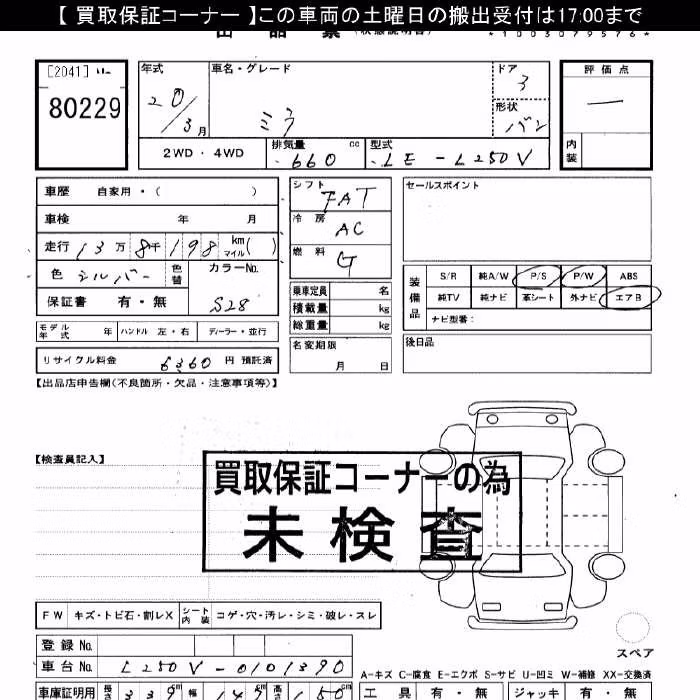 【 買取保証コーナー 】この車両の土曜日の搬出受付は17:00まで
*1003079576*
[2041]
80229
年式
20/3月
車名・グレード
ミラ
ドア
3
形状
バン
評価点
―
内装
2WD ・ 4WD
排気量 660 cc
型式 LE - L250V
車歴 自家用・( )
車検 年 月
走行 13万8千198 km マイル( )
色 シルバー 色替
カラーNo. S28
保証書 有・無
モデル年式 年 ハンドル 左・右 ディーラー・並行
リサイクル料金 6360 円 預託済
シフト FAT
冷房 AC
燃料 G
乗車定員 名
積載量 kg
総重量 kg
名変期限
月 日
セールスポイント
装備品
S/R 純A/W P/S P/W ABS
純TV 純ナビ 革シート 外ナビ エアB
ナビ型番:
後日品
【出品店申告欄(不良箇所・欠品・注意事項等)】
【検査員記入】
買取保証コーナーの為
未検査
FW キズ・トビ石・割レX シート内装 コゲ・穴・汚レ・シミ・破レ・スレ
スペア
登録 No.
車台 No. L250V-0101390
A-キズ C-腐食 E-エクボ S-サビ U-凹ミ W-補修 XX-交換済
車庫証明用 長さ 339cm 幅 147cm 高さ 150cm
工具 有・無 ジャッキ 有・無